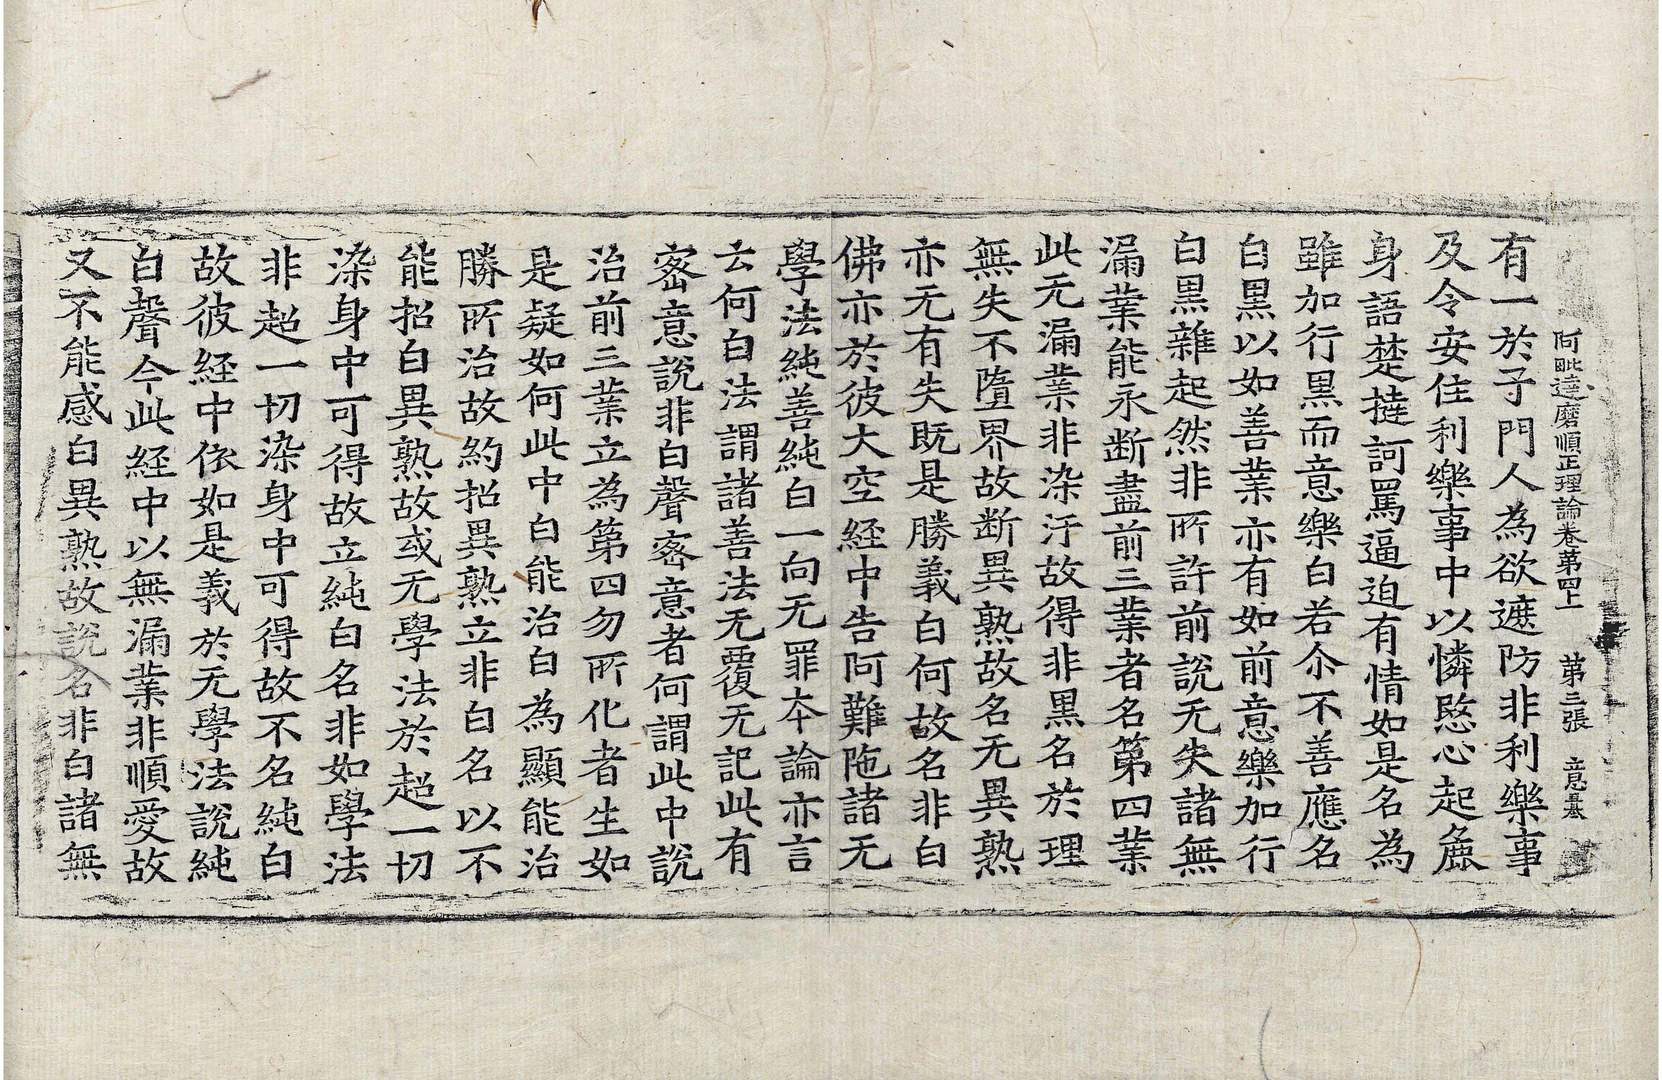 阿毗達磨順正理論卷第四上　第三張　意
有一於子門人為欲遮防非利樂事
及令安住利樂事中以憐愍心起麁
身語楚撻訶罵逼迫有情如是名為
雖加行黑而意樂白若尒不善應名
白黑以如善業亦有如前意樂加行
白黑雜起然非所許前說无失諸無
漏業能永断盡前三業者名第四業
此无漏業非染汙故得非黑名於理
無失不墮界故断異熟故名无異熟
亦无有失既是勝義白何故名非白
佛亦於彼大空經中告阿難陁諸无
學法純善純白一向无罪本論亦言
云何白法謂諸善法无覆无記此有
密意說非白聲密意者何謂此中說
治前三業立為第四勿所化者生如
是疑如何此中白能治白為顯能治
勝所治故約招異熟立非白名以不
能招白異熟故或无學法於超一切
染身中可得故立純白名非如學法
非超一切染身中可得故不名純白
故彼經中依如是義於无學法說純
白聲今此經中以無漏業非順愛故
又不能感白異熟故說名非白諸無